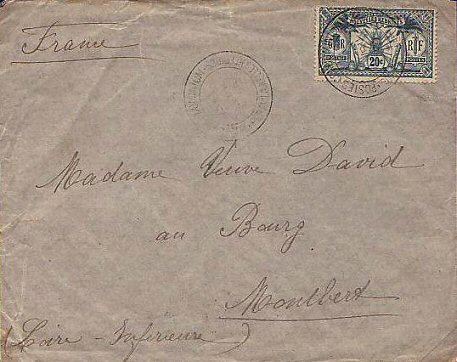 France
RF
20c
Madame Veuve David
au Bourg
Montbert
(Loire-Inférieure)